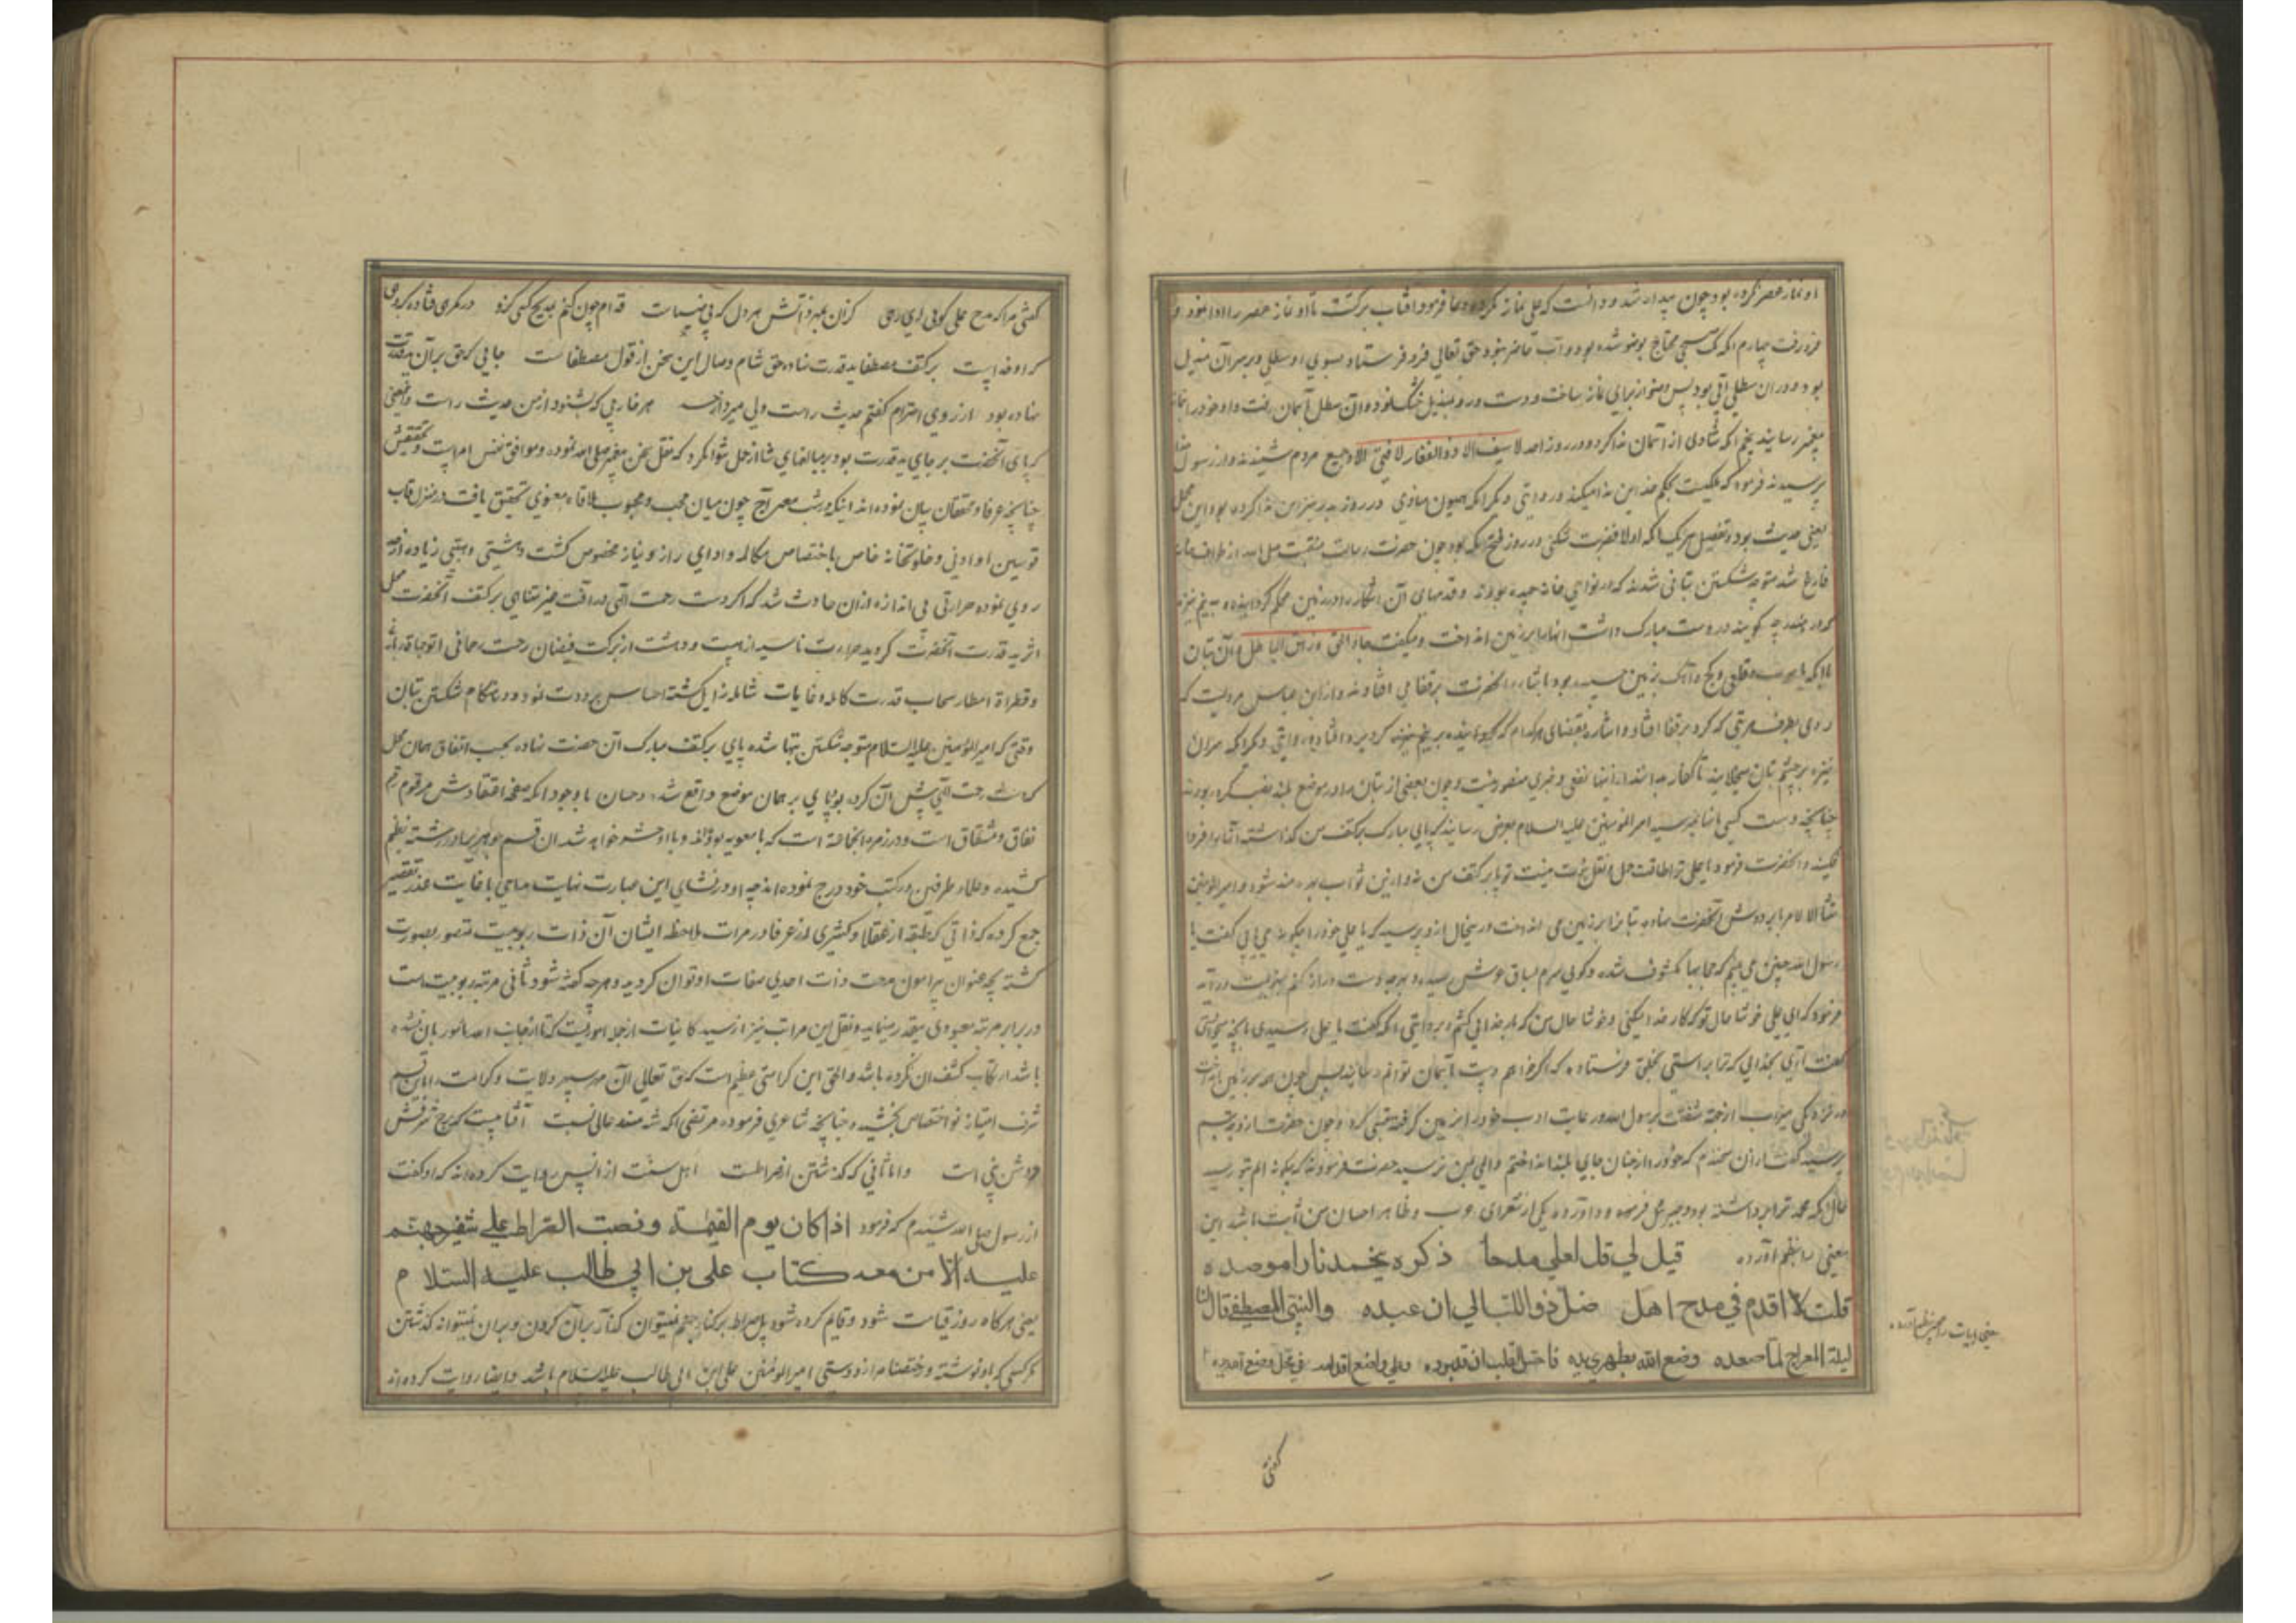 او نماز عصر نکرده بود چون بیدار شد و دانست که علی نماز نکرده دعا فرمود آفتاب برگشت تا او نماز عصر را ادا نمود و
فرو رفت چهارم آنکه صبحی محتاج بوضو شده بود و آب حاضر نبود حق تعالی فرو فرستاد بسوی او سطلی و بر سر آن مندیل
بود و در آن سطل آبی بود پس وضو از برای نماز ساخت و دست و رو بمندیل خشک نمود و آن سطل بآسمان رفت و او خود را بنماز
پیغمبر رسانید پنجم آنکه منادی از آسمان ندا کرد در روز احد لا سیف الا ذو الفقار لا فتی الا و جمیع مردم شنیدند و از رسول خدا
پرسیدند فرمود که ملکیست بحکم خدا این ندا میکند در روایتی دیگر آنکه همیون منادی در روز بدر نیز این ندا کرده بود این مجمل
معنی حدیث بود و تفصیل هر یک آنکه اولا حضرت شکنی در روز فتح مکه بود چون حضرت رسالت منقبت صلی الله از طواف خانه
فارغ شد متوجه شکستن بتانی شدند که در نواحی خانه چیده بودند و قدمهای آن را در زمین محکم گردانیده
که در دست مبارک داشت آنها را بر زمین انداخت و میگفت جاء الحق و زهق الباطل و آن بتان
با آنکه بزمین چسبیده بود باشاره آنحضرت بر قفا می افتادند و از ابن عباس مرویست که
روی بطرف هر بتی که کرد بر قفا افتاد و اشاره بقفای هر کدام که
نیزه بر چشم بتان میخلانید تا کفار بدانند از اینها نفعی و ضرری متصور نیست و چون بعضی از بتان را در موضع بلند نصب کرده بودند
چنانچه دست کسی بآنها نمیرسید امیر المومنین علیه السلام بعرض رسانید که پای مبارک بر کتف من گذاشته آنها را فرود
افکنید و آنحضرت فرمود یا علی ترا طاقت حمل ثقل نبوت نیست تو پا بر کتف من نه و ازین ثواب بهره مند شو و امیر المومنین
امتثالا لامر پا بر دوش آنحضرت نهاده بتانرا بر زمین می انداخت در ینحال ازو پرسید که یا علی خود را چگونه می یابی گفت یا
رسول الله چنین می بینم که حجابها مکشوف شده و گویی سرم بساق عرش رسیده و بهر چه دست دراز کنم بدست در آید
فرمود که ای علی خوشا حال تو که کار خدا میکنی و خوشا حال من که بار خدا می کشم و بروایتی آنکه گفت یا علی رسیدی بآنچه میخواستی
گفت آری بخدایی که ترا براستی بخلق فرستاده که اگر خواهم دست بآسمان توانم رسانید پس چون بر زمین انداخت
در نزدیکی میزاب از جهت شفقت برسول الله و رعایت ادب خود را بر زمین گرفته تبسمی کرد و چون حضرت ازو تبسم
پرسید گفت از آن میخندم که خود را از چنان جای بلند انداختم و المی بمن نرسید حضرت فرمودند که چگونه الم بتو رسد
حال آنکه محمد ترا برداشته بود و جبرئیل فرود آورده یکی از شعرای عرب و ظاهرا حسان بن ثابت باشد این
معنی را بنظم آورده قیل لی قل لعلی مدحا ذکره یخمد نارا موصده
قلت لا اقدم فی مدح اهل ضل ذو اللب الی ان عبده والنبی المصطفی قال لنا
لیلة المعراج لما صعده وضع الله بظهری یده فاحس القلب ان قد برده وعلی واضع اقدامه فی محل وضع الله یده
معنی ابیات را بنظم آورده
گفتی
گفتی مرا که مدح علی گوی ای رهی کز آن بمیرد آتش هر دل که بی ضیاست قدام چون کنم بمدیح کسی کزو در گمرهی فتاده گروهی
که او خداست بر کتف مصطفا ید قدرت نهاده حق شام وصال این سخن از قول مصطفاست جایی که حق بر آن ید قدرت
نهاده بود از روی احترام گفتم حدیث راست ولی میرد از حسد هر خارجی که بشنود از من حدیث راست و این معنی
که پای آنحضرت بر جای ید قدرت بود بر مبالغهای شاعرانه حمل نتوان کرد که نقل سخن پیغمبر صلی الله نموده و موافق نفس امر است و تحقیقش
چنانچه عرفا و محققان بیان نموده اند اینکه در شب معراج چون میان محب و محبوب ملاقات معنوی تحقیق یافت در منزل قاب
قوسین او ادنی و خلوتخانه خاص باختصاص مکالمه و ادای راز و نیاز مخصوص گشت دهشتی و هیبتی زیاده از حد
روی نموده حرارتی بی اندازه از آن حادث شد که اگر دست رحمت الهی و رأفت غیر متناهی بر کتف آنحضرت محل
اثر ید قدرت آنحضرت گردید حرارت ناشیه از هیبت و دهشت از برکت فیضان رحمت رحمانی
و قطرات امطار سحاب قدرت کامله و عنایات شامله زایل گشته احساس برودت نمود و در هنگام شکستن بتان
وقتی که امیر المؤمنین علیه السلام متوجه شکستن بتها شده پای بر کتف مبارک آن حضرت نهاده بحسب اتفاق همان محل
که دست رحمت الهی پیش آن کرده بود پای بر همان موضع واقع شد و حسان با وجود آنکه صفحه اعتقادش مرقوم رقم
نفاق و شقاق است و در زمره آنجماعت است که با معویه بوداند و با او حشر خواهد شد آن قسم جوهر ی در رشته نظم
کشیده و علماء طرفین در کتب خود درج نموده اند چه او در انشای این عبارت نهایت مداحی با غایت عذر تقصیر
جمع کرده که ذاتی که طبقه از عقلا و کثیری از عرفا در مرات ملاحظه ایشان آن ذات ربوبیت متصور بصورت
گشته بچه عنوان پیرامون مدحت ذات احدی صفات او توان گردید و هر چه گفته شود ثانی مرتبه ربوبیت است
در برابر مرتبه معبودی بیقدر مینماید و نقل این مراتب نیز از سید کاینات از جمله اموریست که تا از جانب احد مامور بآن نشده
باشد ارتکاب کشف آن نکرده باشد و الحق این کرامتی عظیم است که حق تعالی آن مهر سپهر ولایت و کرامت را باین قسم
شرف امتیاز نو اختصاص بخشیده چنانچه شاعری فرموده مرتضی آنکه شه مسند عالی نسبت آفتابیست که برج شرفش
دوش نبی است و اما ثانی که گذشتن از صراطست اهل سنت از انس روایت کرده اند که او گفت
از رسول صلی الله شنیدم که فرمود اذا کان یوم القیمة و نصب الصراط علی شفیر جهنم
علیه الا من معه کتاب علی بن ابی طالب علیه السلام
یعنی هر گاه روز قیامت شود و قایم کرده شود پل صراط بر کنار جهنم نمیتوان گذار بر آن کردن و بر آن نمیتواند گذشتن
مگر کسی که با او نوشته و رخصتنامه از دوستی امیر المومنین علی ابن ابی طالب علیه السلام باشد و ایضا روایت کرده اند